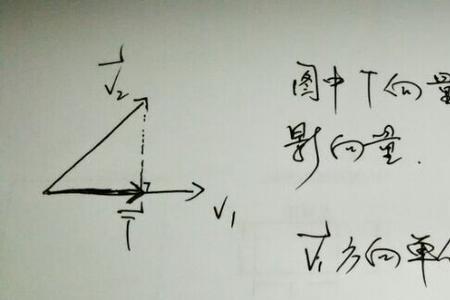 V₂
V₁
T
图中T向量
影向量.
V₁方向单